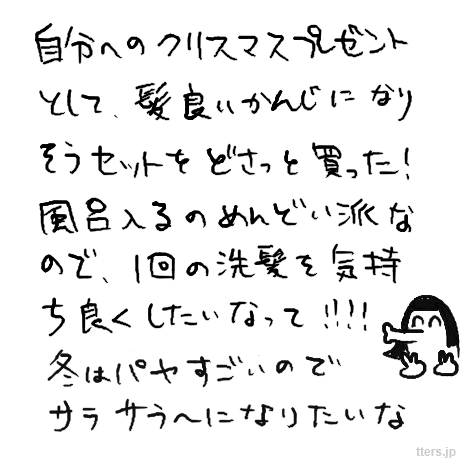 自分へのクリスマスプレゼント
として、髪良いかんじになり
そうセットをどさっと買った!
風呂入るのめんどい派な
ので、1回の洗髪を気持
ち良くしたいなって!!!!
冬はパヤすごいので
サラサラヘになりたいな
tters.jp